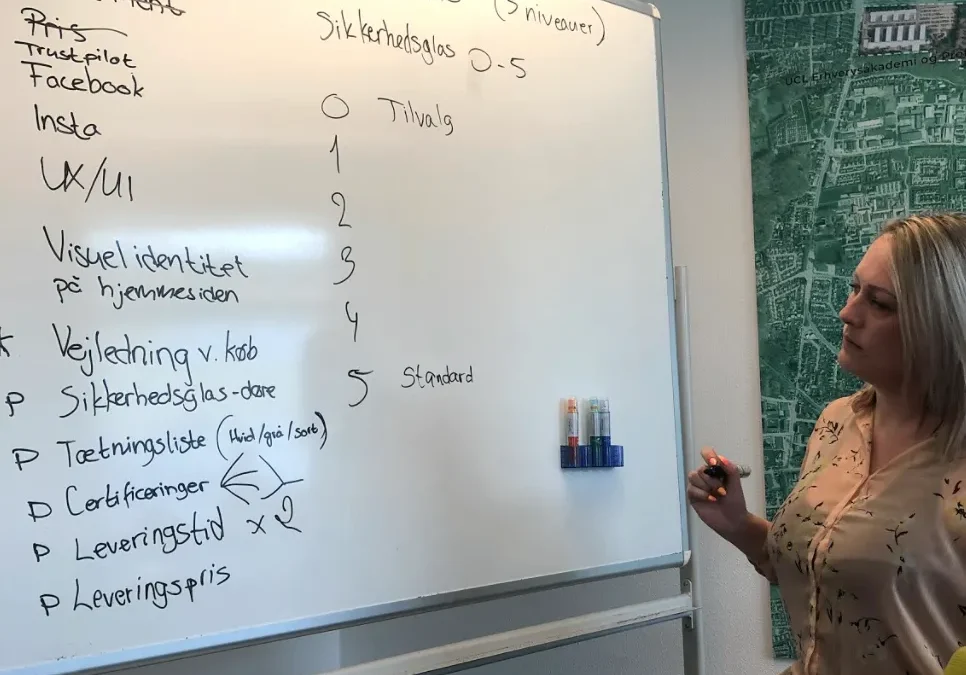 Pris
Trustpilot
Facebook
Insta
UX/UI
Visuel identitet
på hjemmesiden
Vejledning v. køb
P Sikkerhedsglas-døre
P Tætningsliste (Hvid/grå/sort)
P Certificeringer
P Leveringstid x2
P Leveringspris
(5 niveauer)
Sikkerhedsglas 0-5
0 Tilvalg
1
2
3
4
5 Standard
UCL Erhvervsakademi og Pro